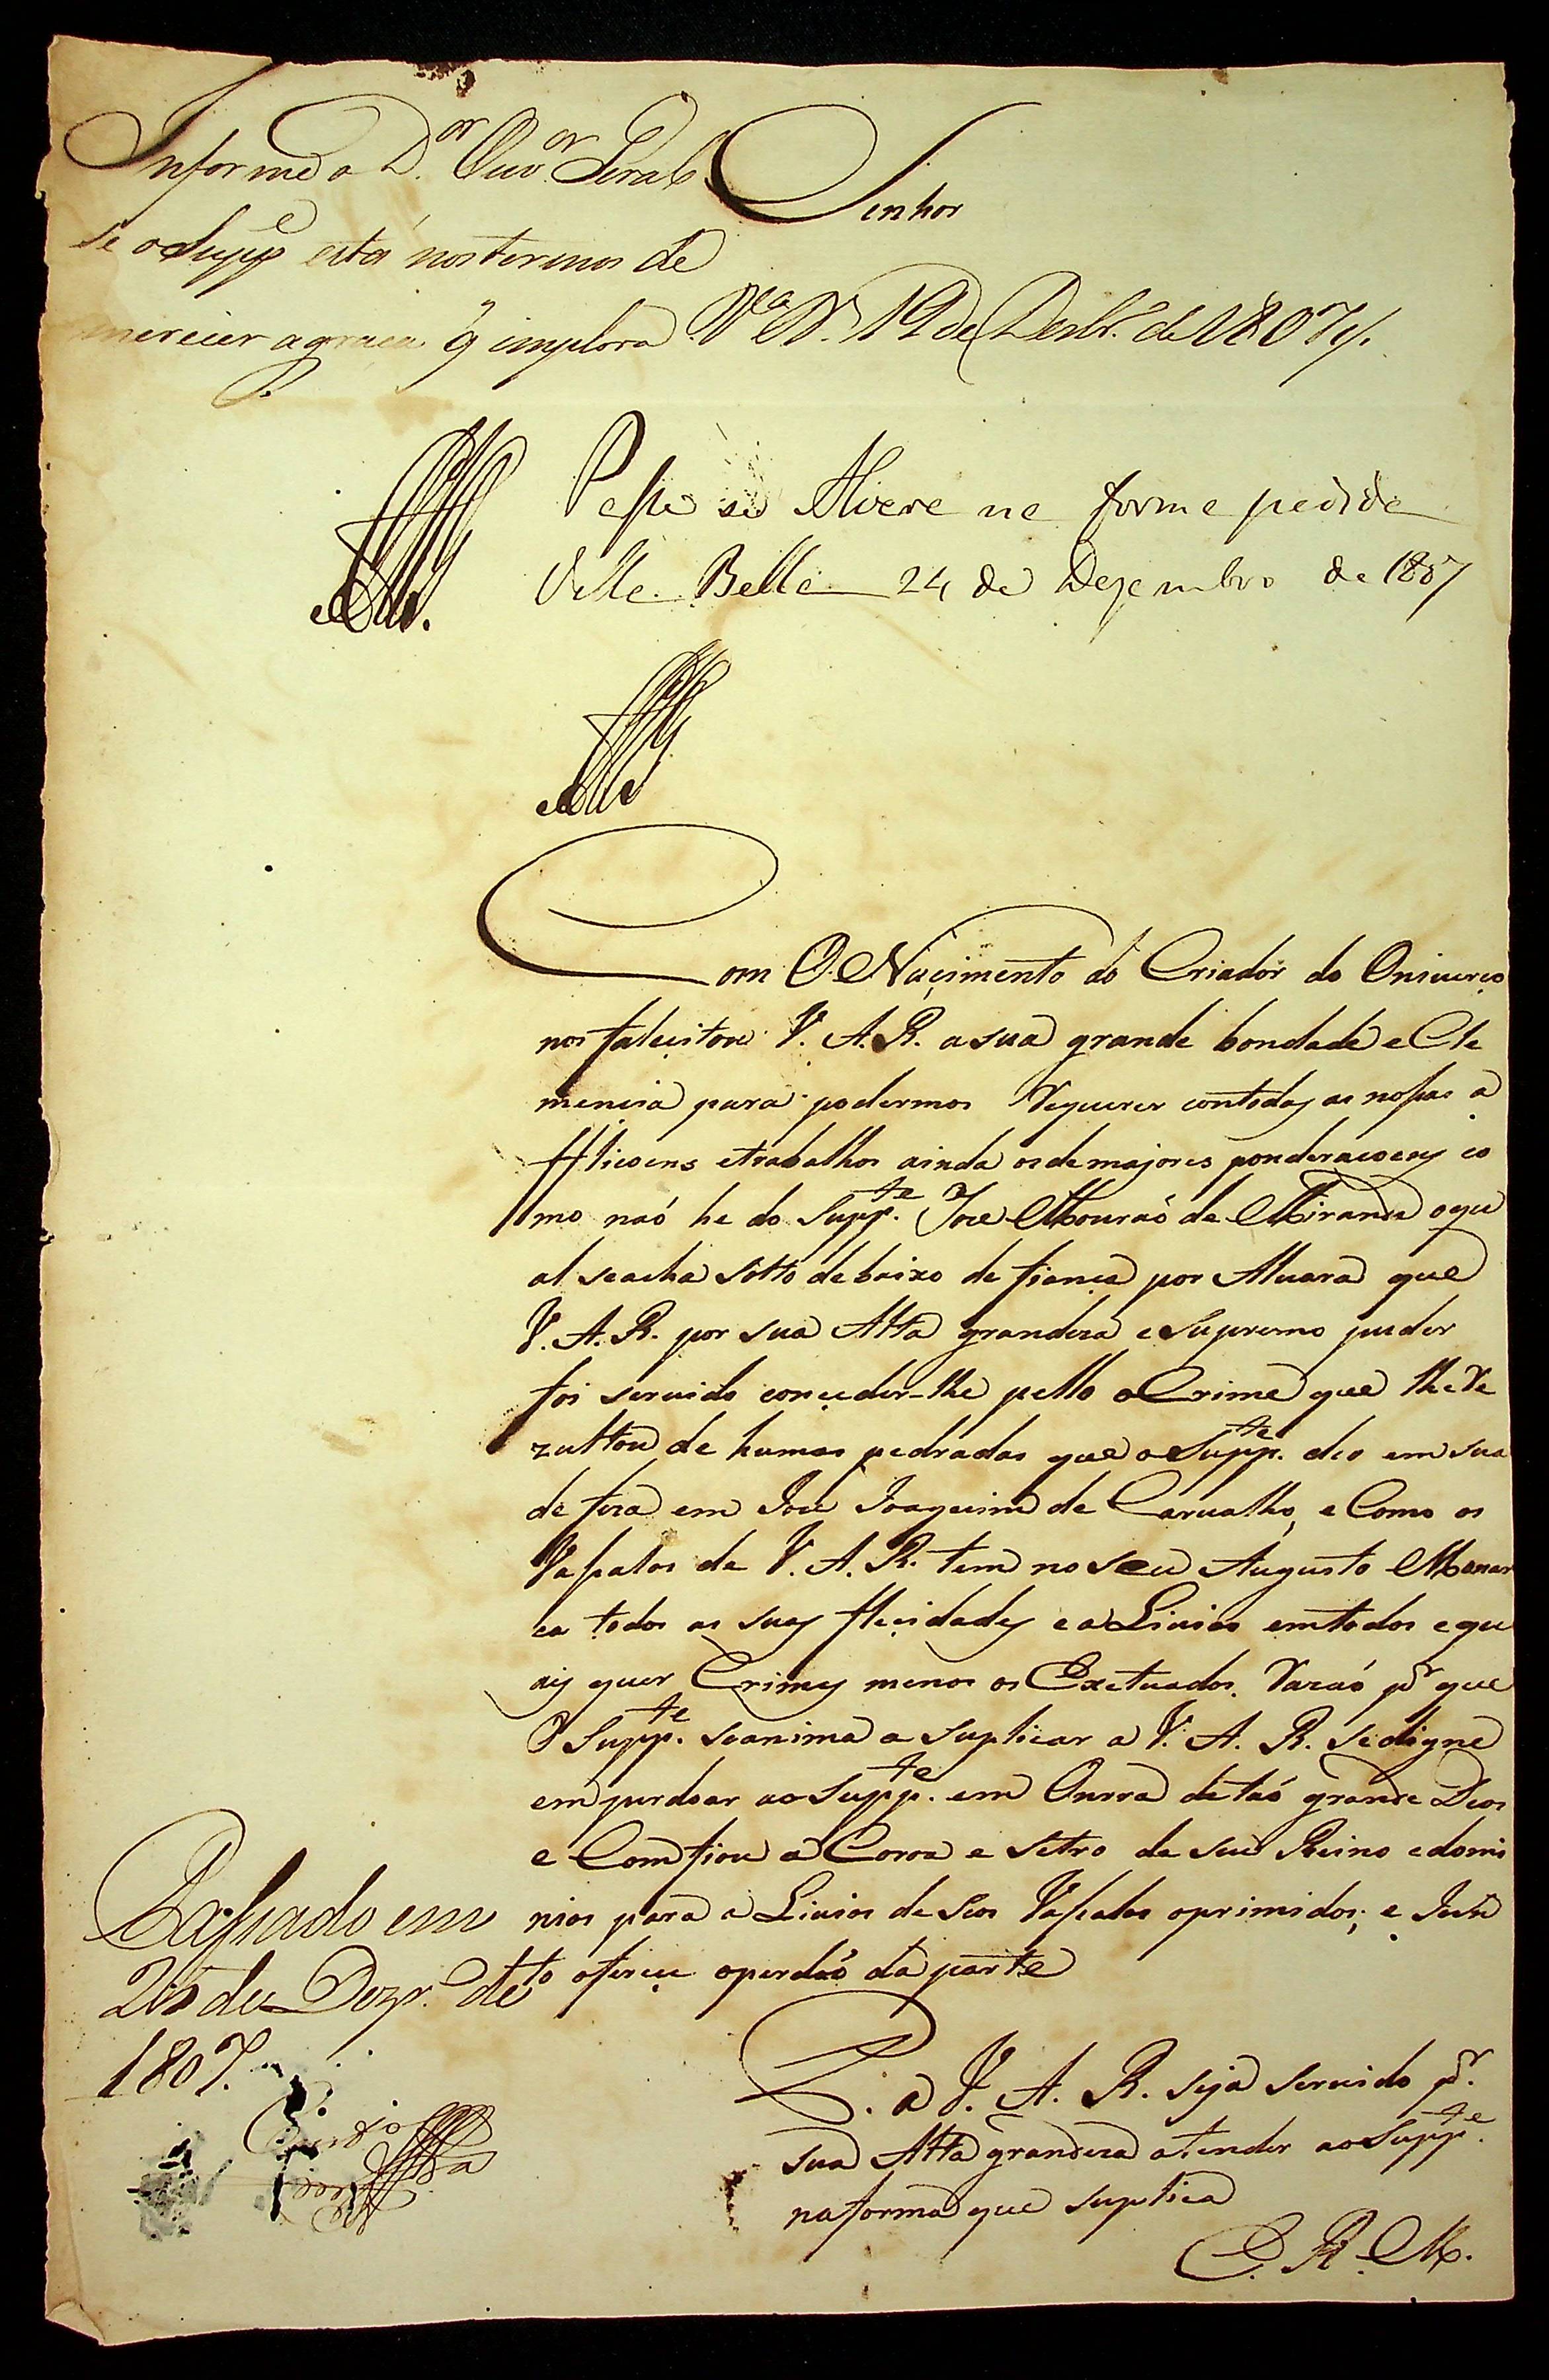 Senhor
Informe o D.or Ouv.or Geral
se o Supp.e está nos termos de
merecer a graça q̃ implora V.a B.a 19 de Dezbr.o de 1807
Passe se Alvara na forma pedida
Villa Bella 24 de Dezembro de 1807
Com O Naçimento do Criador do Oniverço
nos faleçitou V. A. R. a sua grande bondade e Cle
mencia para podermos Requerer contodas as nossas a
fflicoens etrabalhos ainda os de majores ponderacoens co
mo naó he do Supp.te Joze Mouraó de Miranda oqu
al seacha sotto debaixo de fiança por Alvara que
V. A. R. por sua Alta grandeza e Supremo puder
foi servido conçeder-lhe pello o Crime que lhe Re
zultou de humas pedradas que o Supp.te deo em sua
defeza em Joze Joaquim de Carvalho, e Como os
Vassalos de V. A. R. tem no seu Augusto Monar
ca todos as suas fleçidades e a Livios emtodos e qu
ais quer Crimes menos os Exetuados. Razaó p.r que
O Supp.te seanima a Suplicar a V. A. R. sedigne
em perdoar ao Supp.te em Onrra detaó grande Deos
e Comfiou a Coroa e Setro de seu Reino edomi
nios para a Livios de Seos Vassalos oprimidos; e Jun
to ofereçe operdaó da parte
P. a V. A. R. seja servido p.r
sua Alta grandeza atender ao Supp.te
naforma que suplica
E. R. M.
Passado em
26 de Dezr.o de
1807.